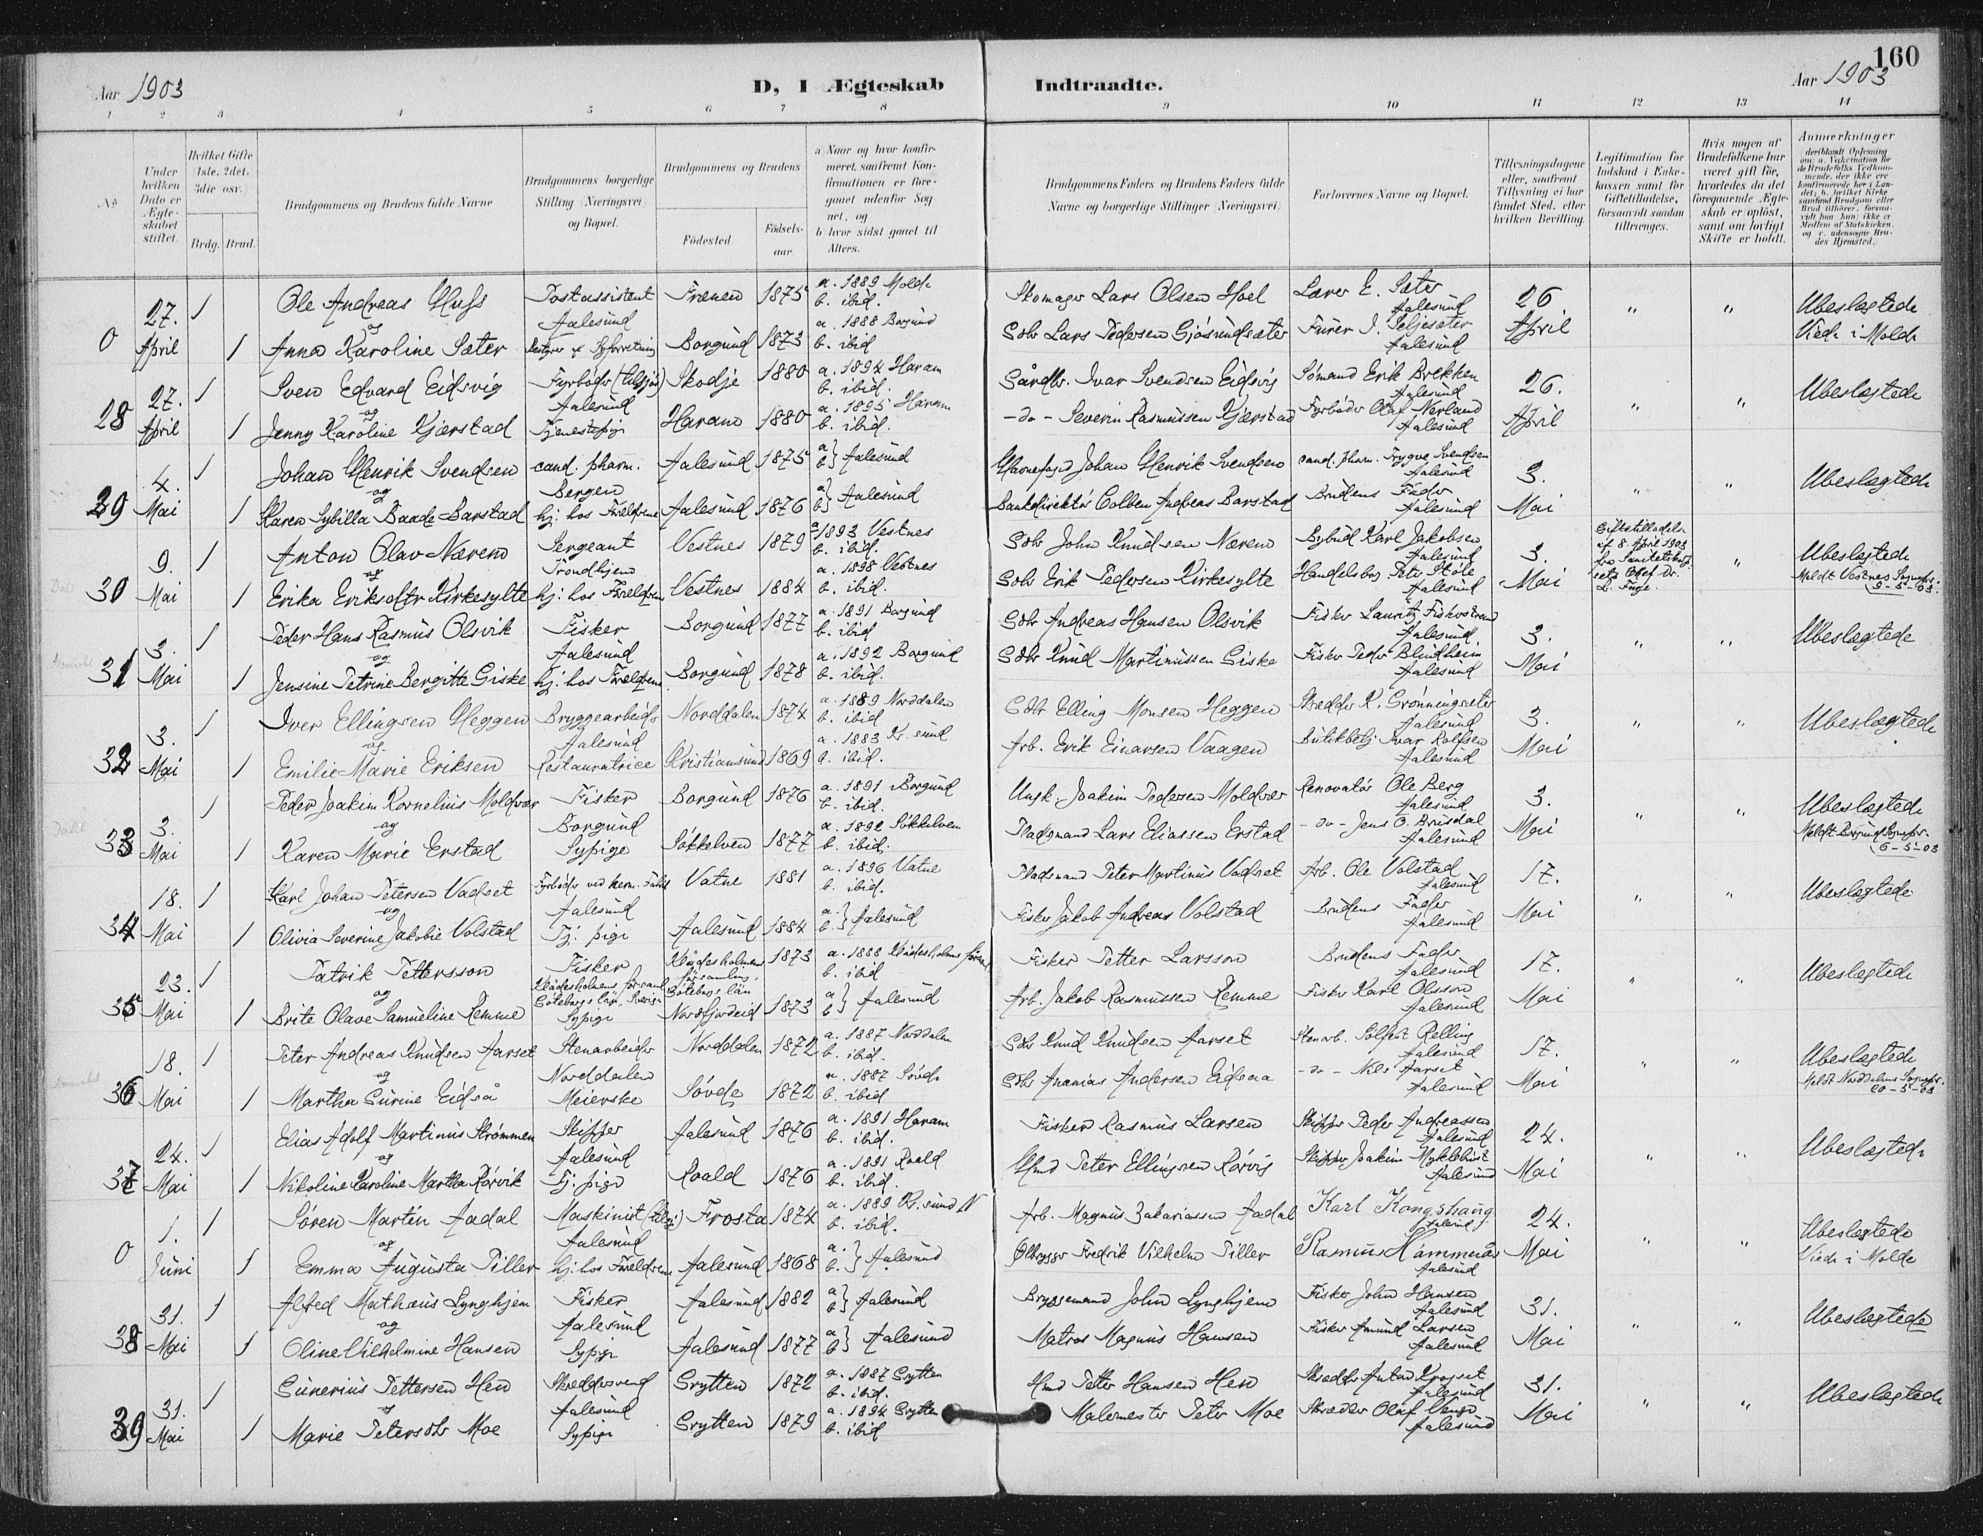 160
Aar 1903
D, I Ægteskab
Indtraadte.
Aar 1903
1 2 3 4 5 6 7 8 9 10 11 12 13 14
No.
Under hvilken Dato er Ægteskabet stiftet.
Hvilket Gifte 1ste, 2det, 3die osv.
Brdg. Brud.
Brudgommens og Brudens fulde Navne
Brudgommens borgerlige Stilling (Næringsvei) og Bopæl.
Brudgommens og Brudens
Fødested.
Fødselsaar.
a) Naar og hvor konfirmeret, saafremt Konfirmationen er foregaaet udenfor Sognet, og
b) hvor sidst gaaet til Alters.
Brudgommens Faders og Brudens Faders fulde Navne og borgerlige Stillinger (Næringsvei)
Forlovernes Navne og Bopæl.
Tillysningsdagene eller, saafremt Tillysning ei har fundet Sted, efter hvilken Bevilling.
Legitimation for Indskud i Enkekassen samt for Giftetilladelse, forsaavidt saadan tiltrænges.
Hvis nogen af Brudefolkene har været gift før, hvorledes da det foregaaende Ægteskab er opløst, samt om lovligt Skifte er holdt.
Anmærkninger
0 27. April 1 Ole Andreas Huss Postassistent Aalesund Frænen 1875 a. 1889 Molde b. ibid. Skomager Lars Olsen Hoel Lærer E. Sæter Aalesund 26 April " " Ubeslægtede
og
1 Anna Karoline Sæter Borgund 1873 a. 1888 Borgund b. ibid Gdbr Lars Pedersen Gjøsundsæter Furer J. Seljesæter Aalesund Viede i Molde
28 27. April 1 Sven Edvard Eidsvig Fyrbøder Aalesund Skodje 1880 a. 1894 Haram b. ibid. Gårdbr. Ivar Svendsen Eidsvig Sømand Erik Brekken Aalesund 26. April " " Ubeslægtede
og
1 Jenny Karoline Kjærstad Tjenestepige Haram 1880 a. 1895 Haram b. ibid. -do- Severin Rasmussen Kjærstad Fyrbøder Olaf Nerland Aalesund
29 4. Mai 1 Johan Henrik Svendsen cand. pharm. Bergen Aalesund 1875 a b} Aalesund Havnefoged Johan Henrik Svendsen cand. pharm. Trygve Svendsen Aalesund 3. Mai " " Ubeslægtede
og
1 Karen Sybilla Baade Barstad hj: hos Forældrene Aalesund 1876 a b} Aalesund Bankdirektør Colben Andreas Barstad Brudens Fader Aalesund
30 9. Mai 1 Anton Olav Nærem Sergeant Trondhjem Vestnes 1879 a. 1893 Vestnes b. ibid. Gdbr John Knudsen Nærem Bybud Karl Jakobsen Aalesund 3. Mai Giftestilladelse af 8. April 1903 " Ubeslægtede
og
1 Erika Eriksdtr Kirkesylte hj: hos Forældrene Vestnes 1884 a. 1898 Vestnes b. ibid. Gdbr Erik Pedersen Kirkesylte Handelsbog Peter Ståle Aalesund Meldt Vestnes Sognepr. 9-5-03.
31 3. Mai 1 Peder Hans Rasmus Olsvik Fisker Aalesund Borgund 1877 a. 1891 Borgund b. ibid Gdbr Andreas Hansen Olsvik Fisker Lauritz Fiskerstrand Aalesund 3. Mai " " Ubeslægtede
og
1 Jensine Petrine Bergitte Giske hj: hos Forældrene Borgund 1878 a. 1892 Borgund b. ibid. Gdbr Knud Martinussen Giske Fisker Peder Blindheim Aalesund
32 3. Mai 1 Iver Ellingsen Heggen Bryggearbeider Aalesund Norddalen 1874 a. 1889 Norddalen b. ibid Gdbr Elling Monsen Heggen Skredder K. Grønningsæter Aalesund 3. Mai " " Ubeslægtede
og
1 Emilie Marie Eriksen Restauratrice Kristiansund 1869 a. 1883 Kr. sund b. ibid. Arb. Erik Einarsen Vaagen Butikbetj Ivar Rolfsen Aalesund
33 3. Mai 1 Peder Joakim Kornelius Moldvær Fisker Borgund Borgund 1876 a. 1891 Borgund b. ibid. Ungk. Joakim Pedersen Moldvær Renovatør Ole Berg Aalesund 3. Mai " " Ubeslægtede
og
1 Karen Marie Erstad Sypige Søkkelven 1877 a. 1892 Søkkelven b. ibid. Pladsmand Lars Eliassen Erstad -do- Jens O. Brusdal Aalesund Meldt Borgund Sognepr. 6-5-03
34 18. Mai 1 Karl Johan Petersen Vadset Aalesund Vatne 1881 a. 1896 Vatne b. ibid. Pladsmand Peter Martinus Vadset Arb. Ole Volstad Aalesund 17. Mai " " Ubeslægtede
og
1 Olivia Severine Jakobie Volstad Tj. pige Aalesund 1884 a. b.} Aalesund Fisker Jakob Andreas Volstad Brudens Fader Aalesund
35 23. Mai 1 Patrik Pettersson Fisker Klädesholmens församl. Göteborgs län, Sverige Klädesholmens församling Göteborgs län 1873 a. 1888 Klädesholmens församl b. ibid Fisker Petter Larsson Brudens Fader Aalesund 17. Mai " " Ubeslægtede
og
1 Brite Olave Samueline Remme Sypige Nordfjordeid 1873 a b} Aalesund Arb. Jakob Rasmussen Remme Fisker Karl Olsson Aalesund
36 18. Mai 1 Peter Andreas Knudsen Aarset Stenarbeider Norddalen Norddalen 1872 a. 1887 Norddalen b. ibid. Gdbr Knud Knudsen Aarset Stenarb. Solfest Relling Aalesund 17. Mai " " Ubeslægtede
og
1 Martha Gurine Eidså Meierske Søvde 1872 a. 1887 Søvde b. ibid Gdbr Ananias Andersen Eidsaa -do- Nils Aarset Aalesund Meldt Norddalens Sognepr. 20-5-03
37 24. Mai 1 Elias Adolf Martinus Strømmen Skipper Aalesund Aalesund 1876 a. 1891 Haram b. ibid. Fisker Rasmus Larsen Skipper Peder Andreassen Aalesund 24. Mai " " Ubeslægtede
og
1 Nikoline Karoline Martha Rørvik Tj. pige Roald 1876 a. 1891 Roald b. ibid. Gmd Peter Ellingsen Rørvig Skipper Joakim Myklebust Aalesund
0 1. Juni 1 Søren Martin Aadal Maskinist Aalesund Frosta 1874 a. 1889 Kr. sund N b. ibid. Arb. Magnus Zakariassen Aadal Karl Kongshaug Aalesund 24. Mai " " Ubeslægtede
og
1 Emma Augusta Tiller hj: hos Forældrene Aalesund 1868 a. b.} Aalesund Ølbrygger Fredrik Vilhelm Tiller Rasmus Hammerås Aalesund Viede i Molde
38 31. Mai 1 Alfred Mathæus Lynghjem Fisker Aalesund Aalesund 1882 a b} Aalesund Bryggemand John Lynghjem Fisker John Hansen Aalesund 31. Mai " " Ubeslægtede
og
1 Oline Vilhelmine Hansen Sypige Aalesund 1877 a b} Aalesund Matros Magnus Hansen Fisker Amund Larsen Aalesund
39 31. Mai 1 Gunerius Pettersen Hen Skreddersvend Aalesund Grytten 1872 a. 1887 Grytten b. ibid. Gmd Petter Hansen Hen Skredder Anton Aalesund 31. Mai " " Ubeslægtede
og
1 Marie Petersdtr Moe Sypige Grytten 1879 a. 1894 Grytten b. ibid Malemester Peter Moe Skredder Olaf Venge Aalesund